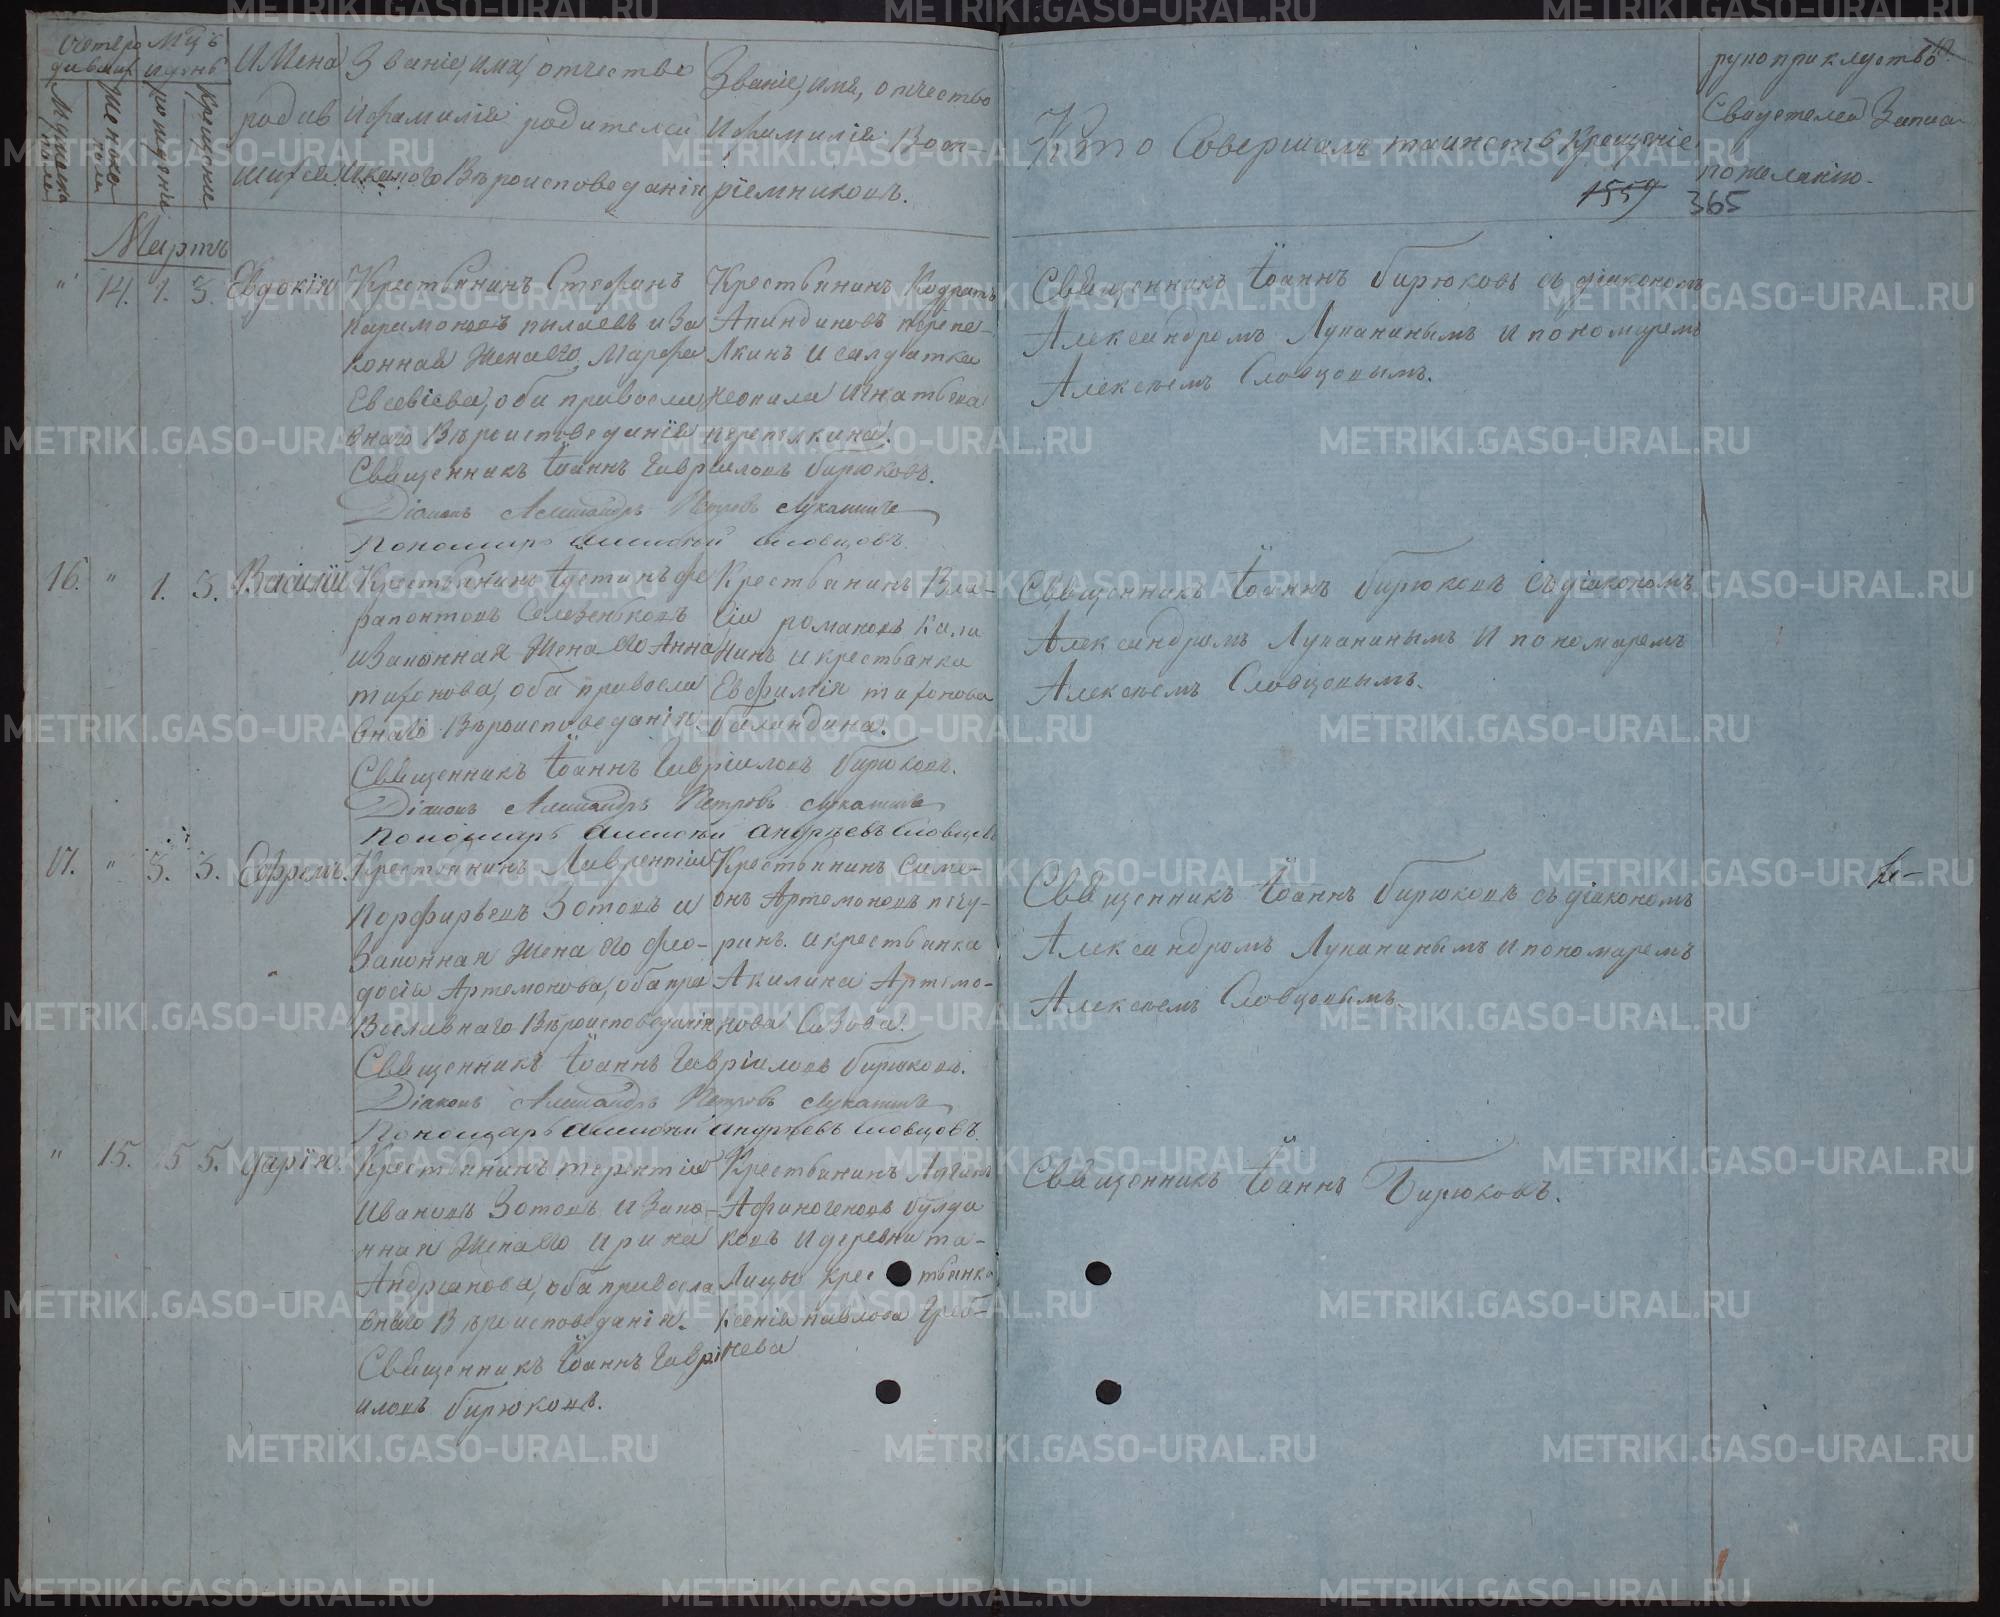 Имена
Званіе, имя, отчество
и фамилія родителей
и какого Вѣроисповеданія
Званіе, имя, отчество
и фамилія Восп-
ріемниковъ.
Кто Совершалъ таинство Крещеніе
рукоприкладство
Свидетелей Записи
по желанію.
1559 365
Мартъ
" 14. 1. 3. Евдокія
Крестьянинъ Стефанъ
Парамоновъ пилаевъ и За
конная Жена его, Марфа
Евсевіева, оба правосла
внаго Вѣроисповеданія
Священникъ Іоаннъ Гавріиловъ Бирюковъ.
Діаконъ Александръ Петровъ Лукани��ъ
Пономарь Алексѣй Словцовъ
Крестьянинъ Кодратъ
перепе-
лкинъ и салдатка
неонила Игнатьева
перепелкина.
Священникъ Іоаннъ Бирюковъ съ діакономъ
Александромъ Луканинымъ и пономаремъ
Алексѣемъ Словцовымъ.
16. " 1. 3. Василій
Крестьянинъ Іустинъ Фе
рапонтовъ Селезеньковъ
и Законная Жена его Анна
тифонова, оба правосла
внаго Вѣроисповеданія.
Священникъ Іоаннъ Гавріиловъ Бирюковъ.
Діаконъ Александръ Петровъ Луканинъ
Пономарь Алексѣй Андрѣевъ Словцовъ
Крестьянинъ Вла-
сій романовъ Кала
нинъ и крестьянка
Евфимія тифонова
баландина.
Священникъ Іоаннъ Бирюковъ съ діакономъ
Александромъ Луканинымъ и пономаремъ
Алексѣемъ Словцовымъ.
17. " 3. 3. Ефремъ.
Крестьянинъ Лаврентій
Порфирьевъ Зотовъ и
Законная Жена его Фео-
досія Артемонова, оба пра
вославнаго Вѣроисповеданія
Священникъ Іоаннъ Гавріиловъ Бирюковъ.
Діаконъ Александръ Петровъ Луканинъ
Пономарь Алексѣй Андрѣевъ Словцовъ.
Крестьянинъ Симе-
онъ Артемоновъ печу-
ринъ. и крестьянка
Акилина Артемо-
нова Сизова.
Священникъ Іоаннъ Бирюковъ съ діакономъ
Александромъ Луканинымъ и пономаремъ
Алексѣемъ Словцовымъ.
" 15. 5 5. дарія.
Крестьянинъ терентій
Ивановъ Зотовъ и Зако-
нная Жена его ирина
Андріанова, оба правосла
внаго Вѣроисповеданія.
Священникъ Іоаннъ Гаврі
иловъ Бирюковъ.
Крестьянинъ
Афиногеновъ булда
ковъ и деревни та-
лицы крестьянка
Ксенія павлова Греб-
нева
Священникъ Іоаннъ Бирюковъ.
METRIKI.GASO-URAL.RU